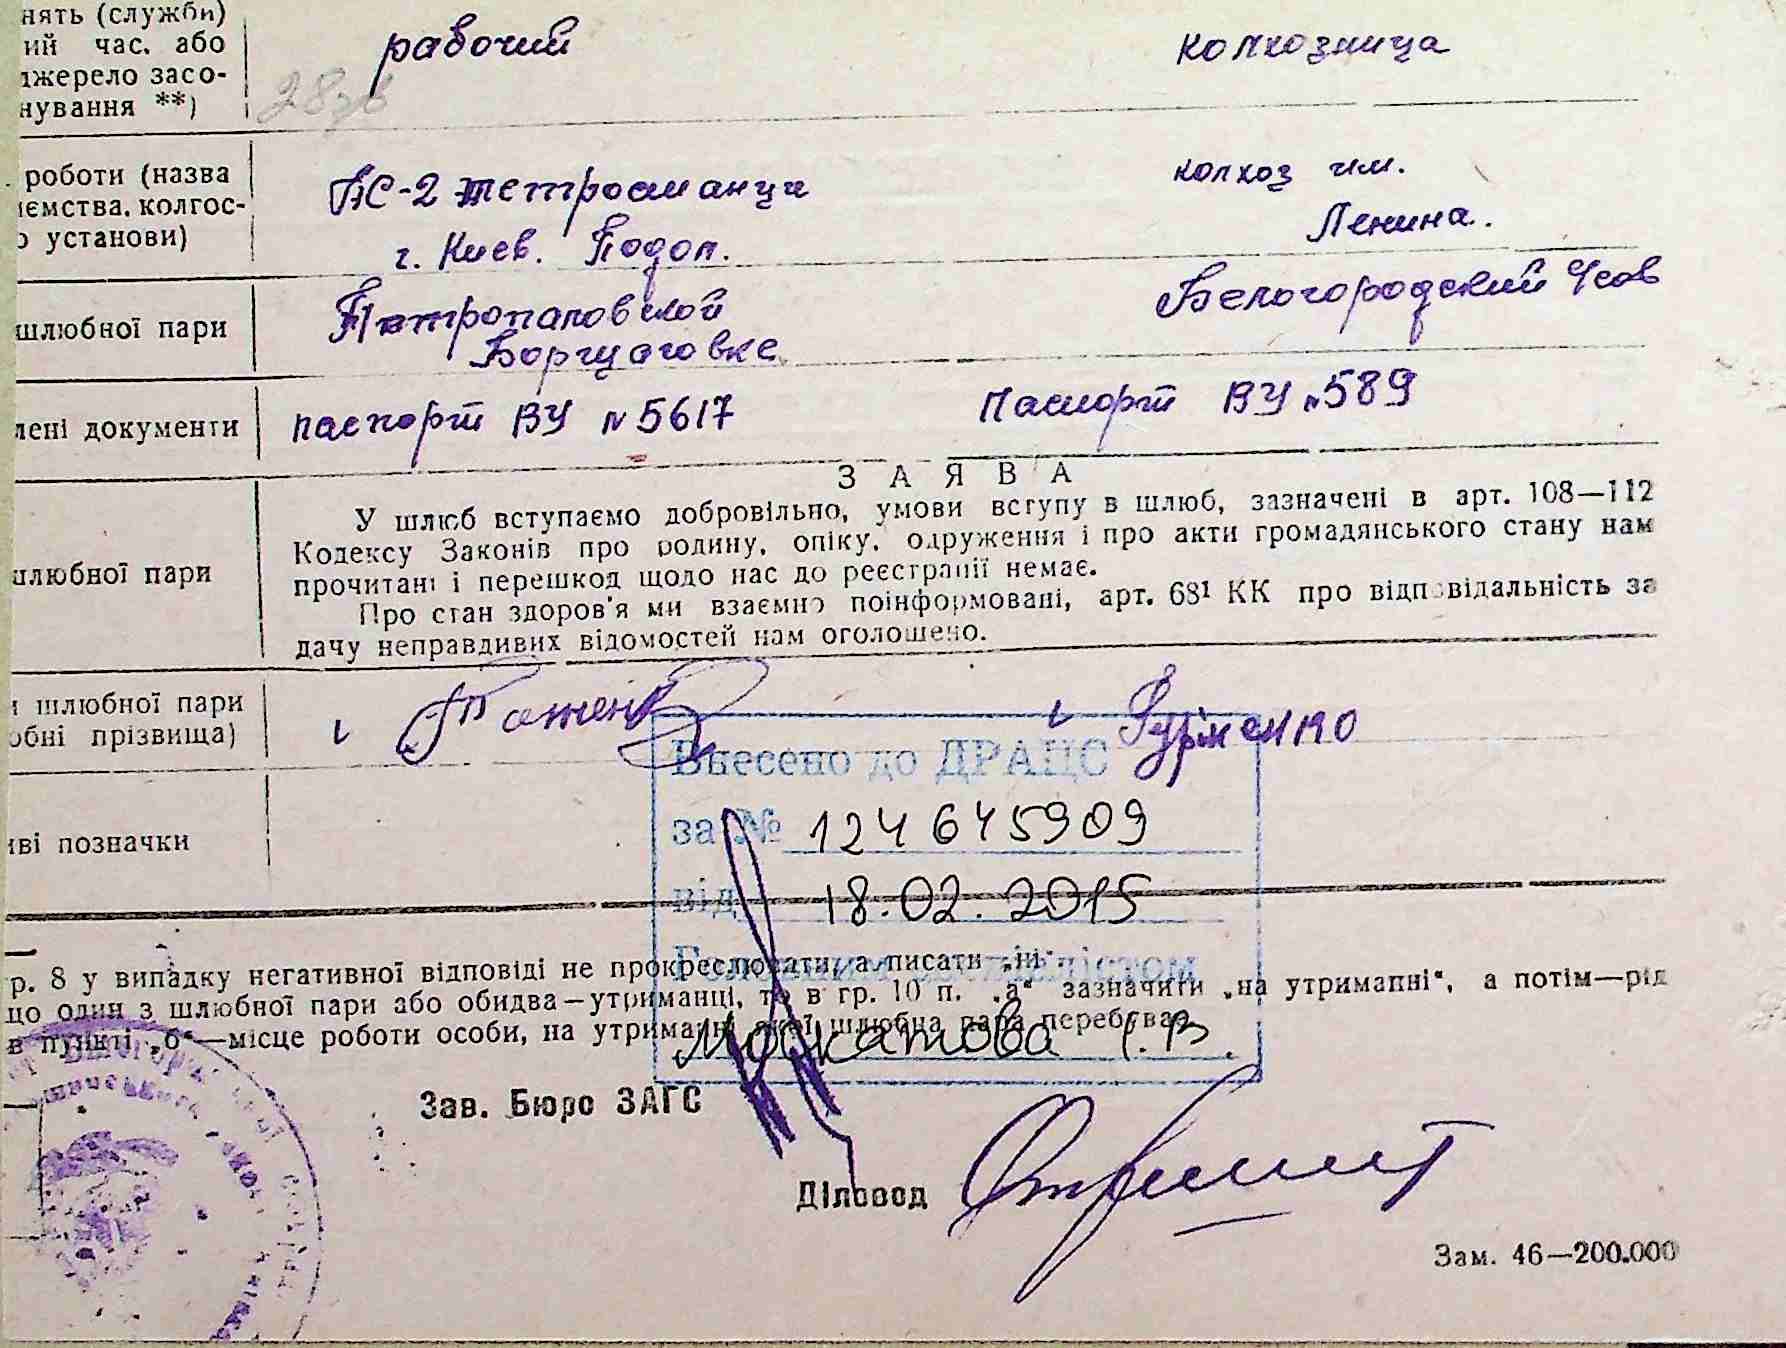 нять (служби)
ий час. або
джерело засо-
нування **)
рабочий
колхозница
роботи (назва
иємства, колгос-
о установи)
ПС-2
г. Киев. Подол.
колхоз им.
Ленина.
шлюбної пари
Петропаловской
Борщаговке
Белогородский
лені документи
паспорт ВУ № 5617
Паспорт ВУ № 589
ЗАЯВА
шлюбної пари
У шлюб вступаємо добровільно, умови вступу в шлюб, зазначені в арт. 108—112
Кодексу Законів про родину, опіку, одруження і про акти громадянського стану нам
прочитані і перешкод щодо нас до реєстрації немає.
Про стан здоров'я ми взаємно поінформовані, арт. 68¹ КК про відповідальність за
дачу неправдивих відомостей нам оголошено.
и шлюбної пари
обні прізвища)
иві позначки
Внесено до ДРАЦС
за № 124645909
від 18.02.2015
Головним спеціалістом
Москатова І.В.
р. 8 у випадку негативної відповіді не прокреслювати, а писати „ні“.
цо один з шлюбної пари або обидва—утриманці, то в гр. 10 п. „а“ зазначити „на утриманні“, а потім—рід
в пункті „б“—місце роботи особи, на утриманні якої шлюбна пара перебуває.
Зав. Бюро ЗАГС
Діловод
Зам. 46—200.000